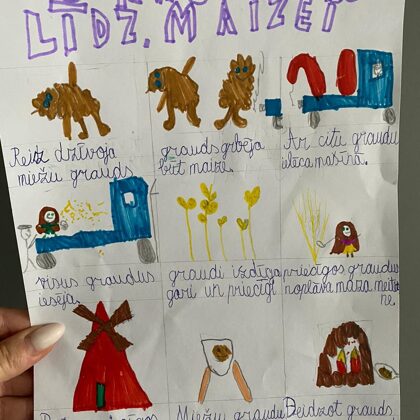 LĪDZ, MAIZEI
Reiz dzīvoja
miežu grauds
grauds gribēja
būt maize.
Ar citu graudu
ielēca mašīnā.
visus graudus
iesēja.
graudi izdīga
gari un priecīgi
priecīgos graudus
nopļāva maza meitene
Miežu graudu
Beidzot graudi